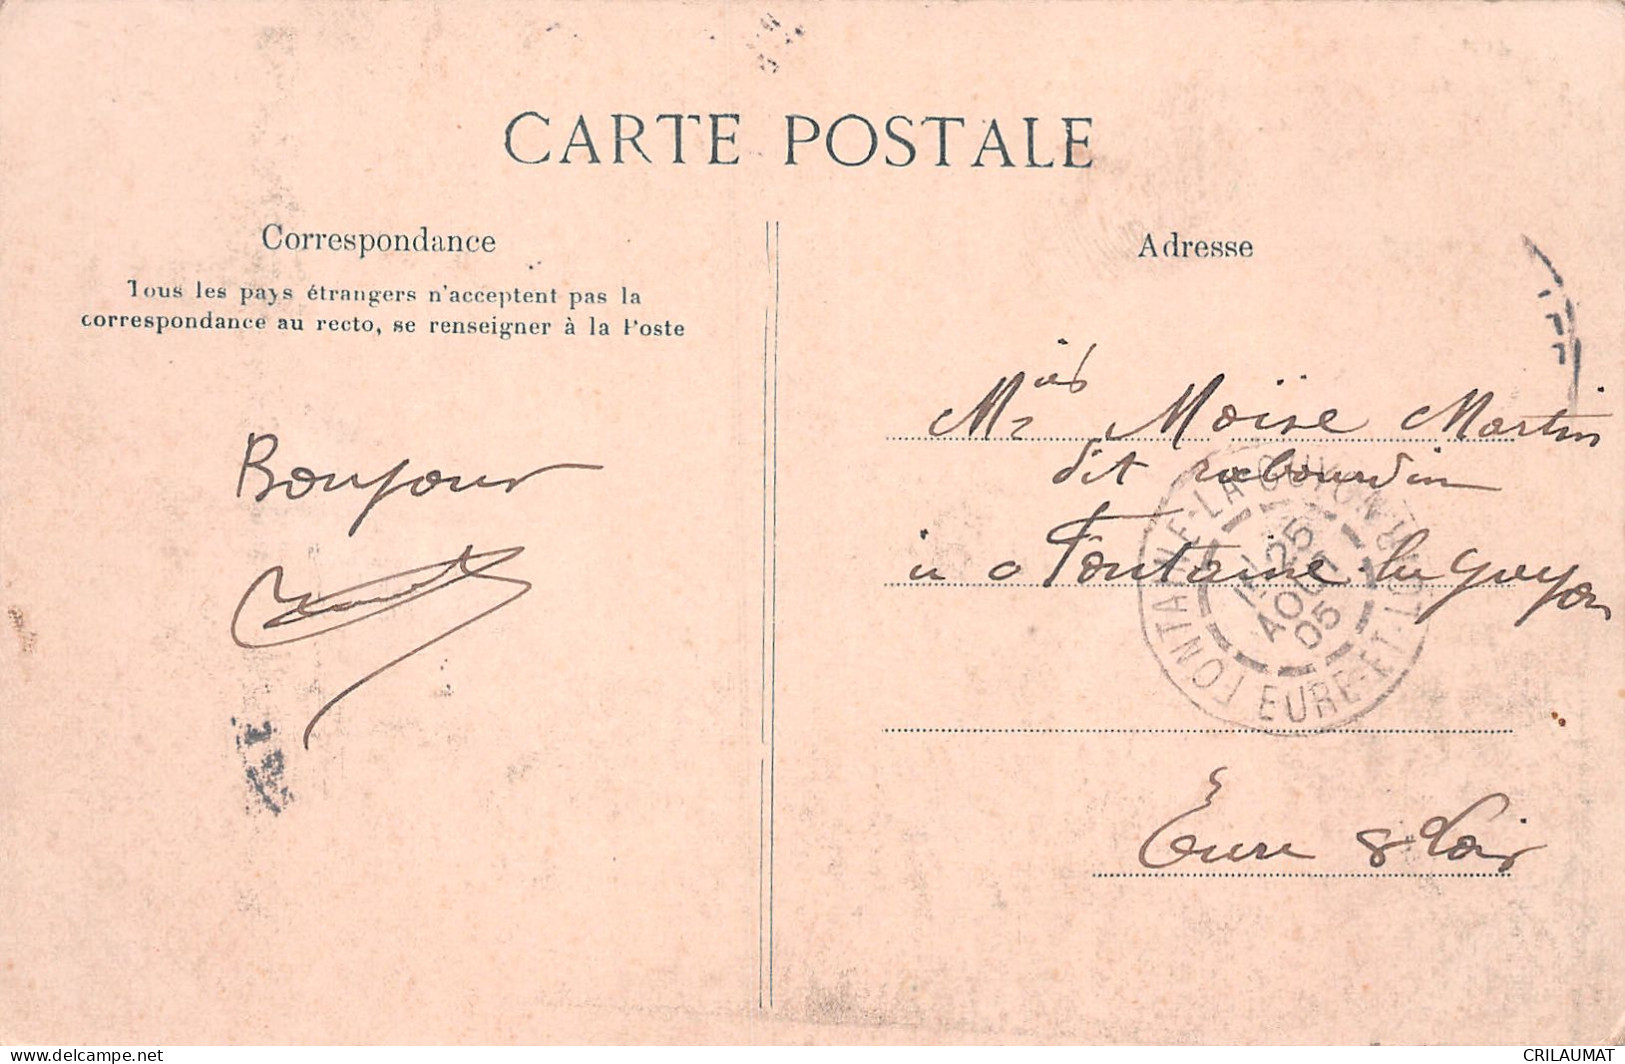 CARTE POSTALE
Correspondance
Tous les pays étrangers n'acceptent pas la
correspondance au recto, se renseigner à la Poste
Bonjour
Adresse
Moïse Martin
dit rabourdin
à Fontaine-la Guyon
FONTAINE-LA-GUYON
25
AOUT
05
EURE-ET-LOIR
Eure & Loir
https://www.delcampe.net
CRILAUMAT